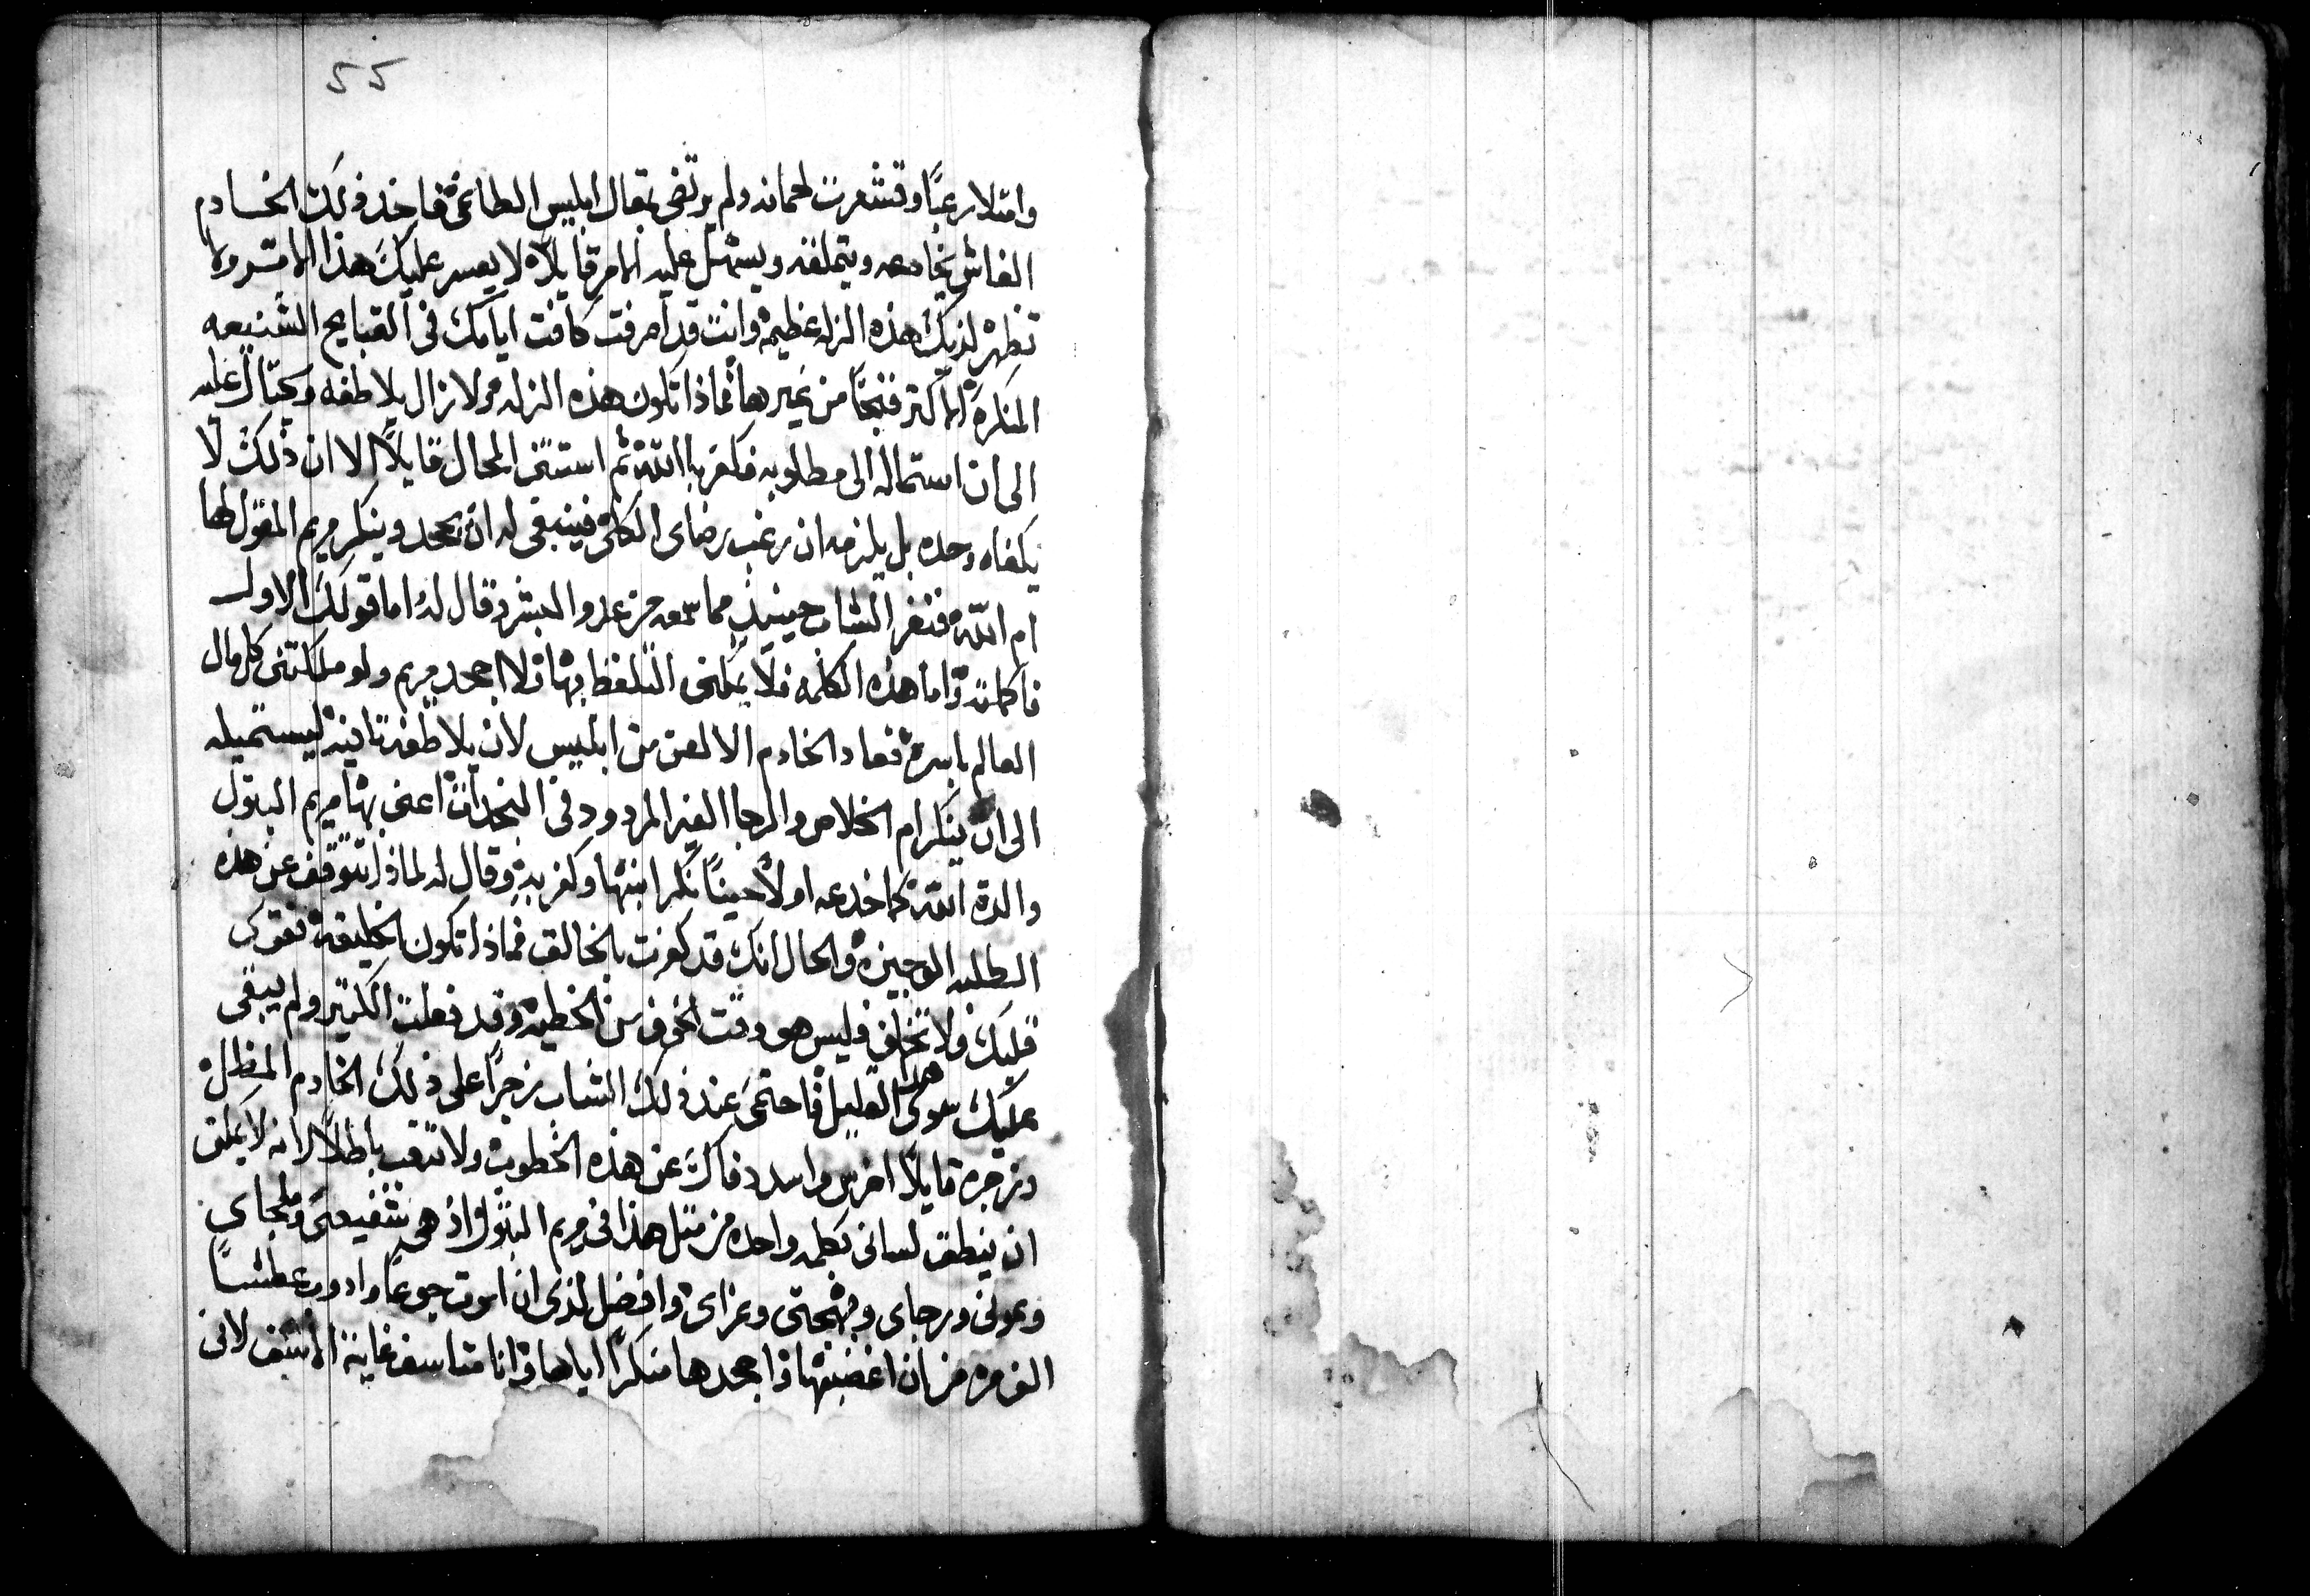 55
وامتلا رعبًا وقشعرت لحمانه ولم يرتضى بمقال ابليس الطاغى فاخذ ذلك الخادم
الغاش يخادعه ويتملقه ويسهل عليه الامر قايلًا لا يعسر عليك هذا الامر ولا
تظهر لديك هذه الزله عظيمة وانت قد اصرفت كافت ايامك فى القبايح الشنيعه
المنكرة الاكتر قبحًا من غيرها فماذا تكون هذه الزله ولازال يلاطفه ويحتال عليه
الى ان استماله الى مطلوبه فكفر باالله ثم استتنى المحال قايلًا الا ان ذلك لا
يكفاه وحده بل يلزمه ان رغب رضاى الكلى فينبغى له ان يجحد وينكر مريم المقول لها
ام الله فنفر الشاب حينيذٍ مما سمعه من عدو البشر وقال له اما قولك الاول
فاكملته واما هذه الكلمه فلا يمكننى التلفظ بها ولا اجحد مريم ولو ملكتنى كل مال
العالم باسره فعاد الخادم الالعن من ابليس لان يلاطفه تانية ليستميله
الى ان ينكر ام الخلاص والرجا الغير المردود فى النجدات اعنى بها مريم البتول
والدة الله كما خدعه اولًا حينًا نكر ابنها وكفر به وقال له لماذا تتوقف عن هذه
الطلبه الوجيزه والحال انك قد كفرت بالخالق فماذا تكون الخليقة فقوى
قلبك ولا تخاف فليس هو وقت الخوف من الخطيه وقد فعلت الكتير ولم يبقى
عليك سوى هذا القليل فاحتمى عند ذلك الشاب زجرًا على ذلك الخادم المظل
وزجره قايلًا اخرس واسدد فاك عن هذه الخطوب ولا تتعب باطلًا لانه لا يمكن
ان ينطق لسانى بكلمه واحده من متل هذا فى مريم البتول اذ هى شفيعتى وملجاى
وعونى ورجاى وبهجتى وعزاى وافضل لدى ان اموت جوعًا وادوب عطشًا
الف مره من ان اغضبها واجحدها منكرًا اياها وانا متاسف غاية الاسف لانى